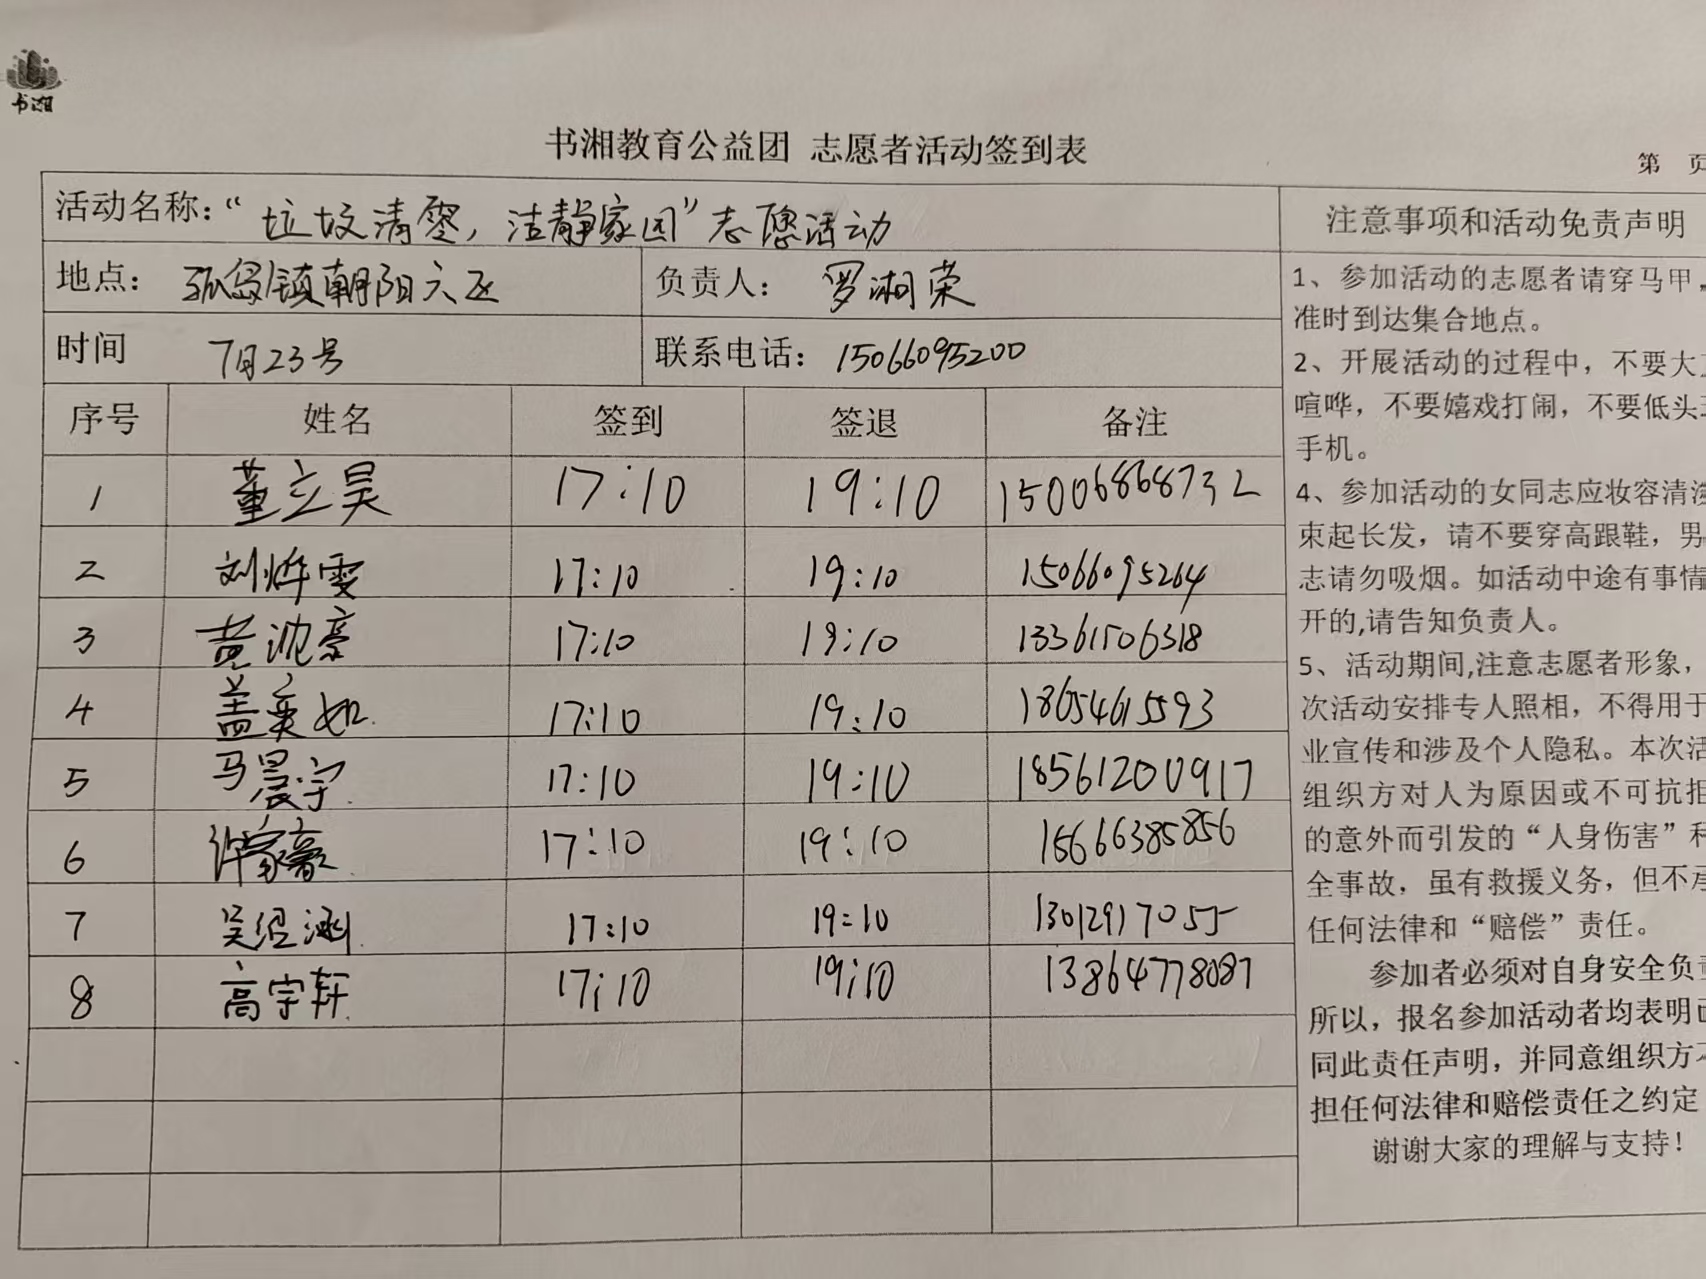 书湘
书湘教育公益团 志愿者活动签到表
第 页
活动名称：“垃圾清零，洁静家园”志愿活动
地点： 孤岛镇朝阳六区
负责人： 罗湘荣
时间 7月23号
联系电话： 15066095200
序号 姓名 签到 签退 备注
1 董立昊 17:10 19:10 15006868732
2 刘烨雯 17:10 19:10 15066095264
3 黄沈豪 17:10 19:10 13361506318
4 盖奕如 17:10 19:10 18654615593
5 马晨宇 17:10 19:10 18561200917
6 许家豪 17:10 19:10 15666385856
7 吴涵 17:10 19:10 13012917055
8 高宇轩 17:10 19:10 13864778087
注意事项和活动免责声明
1、参加活动的志愿者请穿马甲，
准时到达集合地点。
2、开展活动的过程中，不要大
喧哗，不要嬉戏打闹，不要低头
手机。
4、参加活动的女同志应妆容清
束起长发，请不要穿高跟鞋，男
志请勿吸烟。如活动中途有事情
开的,请告知负责人。
5、活动期间,注意志愿者形象，
次活动安排专人照相，不得用于
业宣传和涉及个人隐私。本次活
组织方对人为原因或不可抗拒
的意外而引发的“人身伤害”和
全事故，虽有救援义务，但不承
任何法律和“赔偿”责任。
参加者必须对自身安全负责
所以，报名参加活动者均表明已
同此责任声明，并同意组织方不
担任何法律和赔偿责任之约定
谢谢大家的理解与支持！